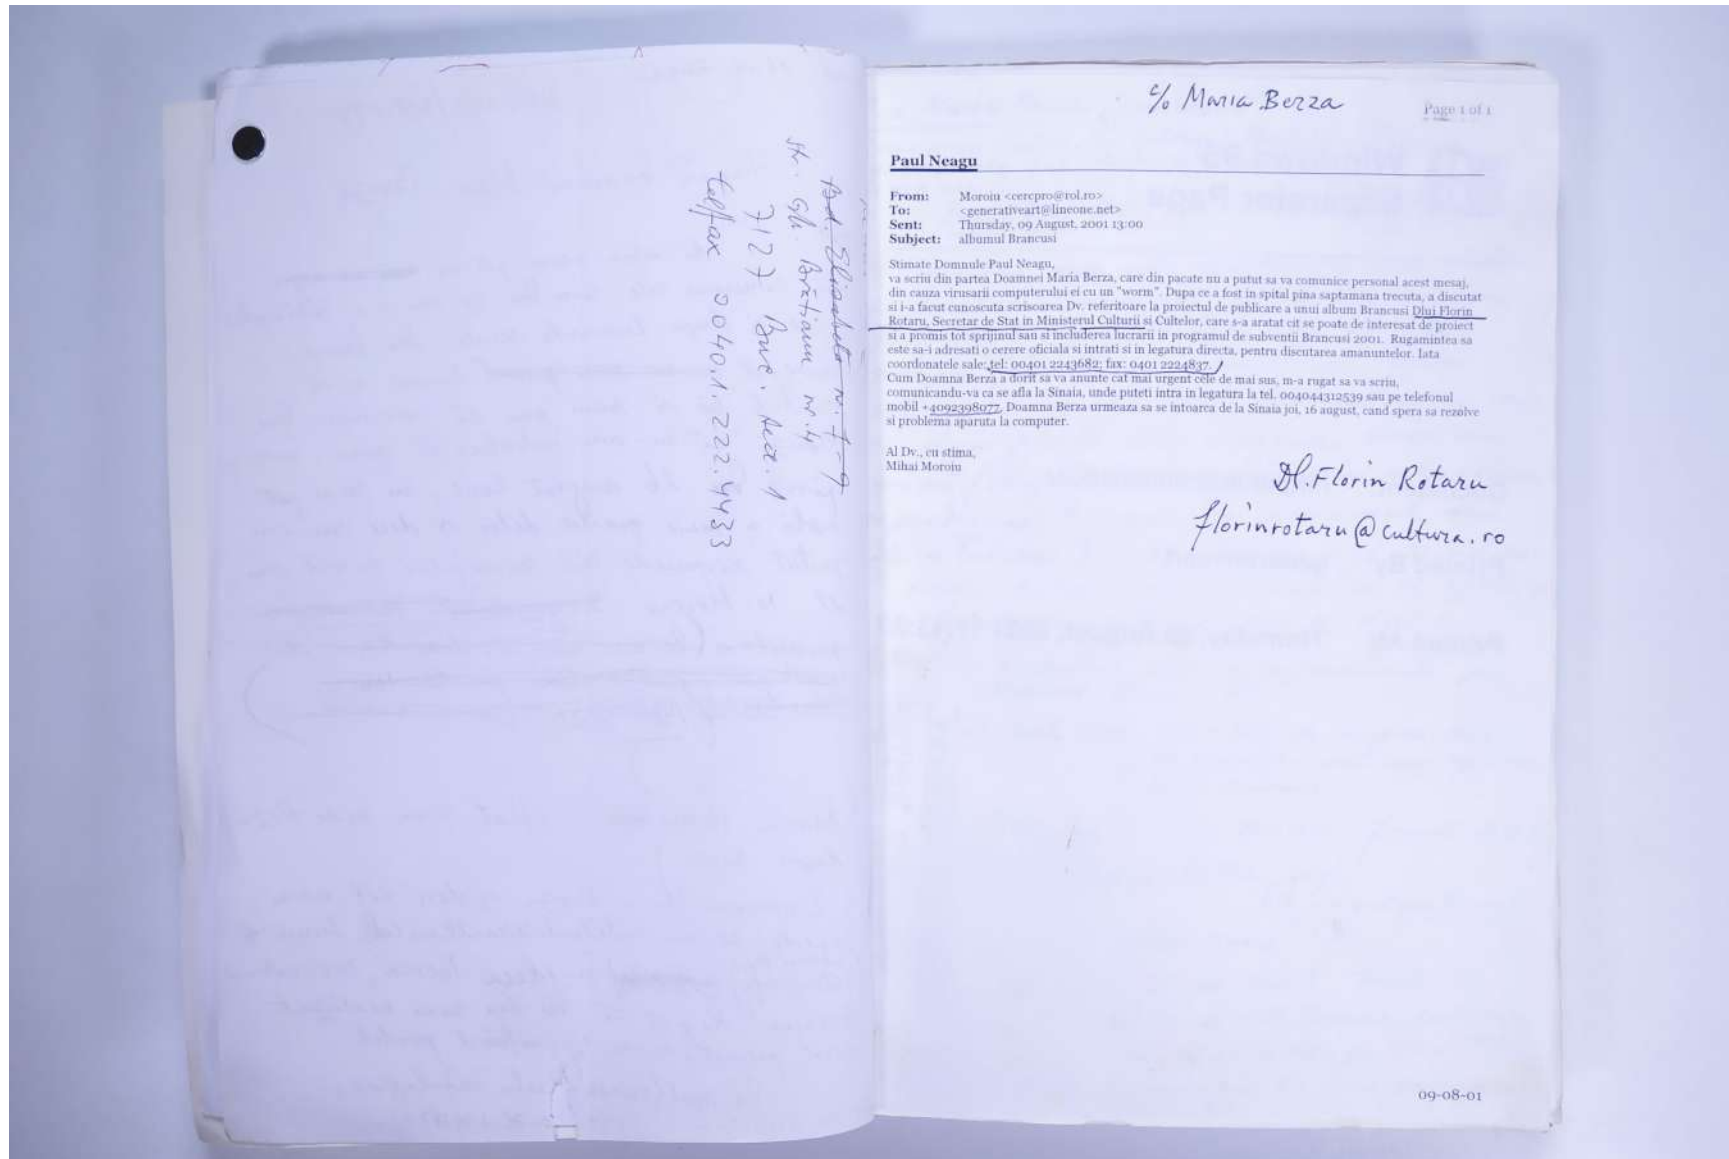 Bd. Elisabeta nr. 7-9
Str. Gh. Brătianu nr. 4
7127 Buc. Sect. 1
tel/fax 0040.1.222.4433
c/o Maria Berza
Page 1 of 1
Paul Neagu
From: Moroiu <cercpro@rol.ro>
To: <generativeart@lineone.net>
Sent: Thursday, 09 August, 2001 13:00
Subject: albumul Brancusi
Stimate Domnule Paul Neagu,
va scriu din partea Doamnei Maria Berza, care din pacate nu a putut sa va comunice personal acest mesaj,
din cauza virusarii computerului ei cu un "worm". Dupa ce a fost in spital pina saptamana trecuta, a discutat
si i-a facut cunoscuta scrisoarea Dv. referitoare la proiectul de publicare a unui album Brancusi Dlui Florin
Rotaru, Secretar de Stat in Ministerul Culturii si Cultelor, care s-a aratat cit se poate de interesat de proiect
si a promis tot sprijinul sau si includerea lucrarii in programul de subventii Brancusi 2001. Rugamintea sa
este sa-i adresati o cerere oficiala si intrati si in legatura directa, pentru discutarea amanuntelor. Iata
coordonatele sale: tel: 00401 2243682; fax: 0401 2224837.
Cum Doamna Berza a dorit sa va anunte cat mai urgent cele de mai sus, m-a rugat sa va scriu,
comunicandu-va ca se afla la Sinaia, unde puteti intra in legatura la tel. 004044312539 sau pe telefonul
mobil +4092398077. Doamna Berza urmeaza sa se intoarca de la Sinaia joi, 16 august, cand spera sa rezolve
si problema aparuta la computer.
Al Dv., cu stima,
Mihai Moroiu
Dl. Florin Rotaru
florinrotaru@cultura.ro
09-08-01